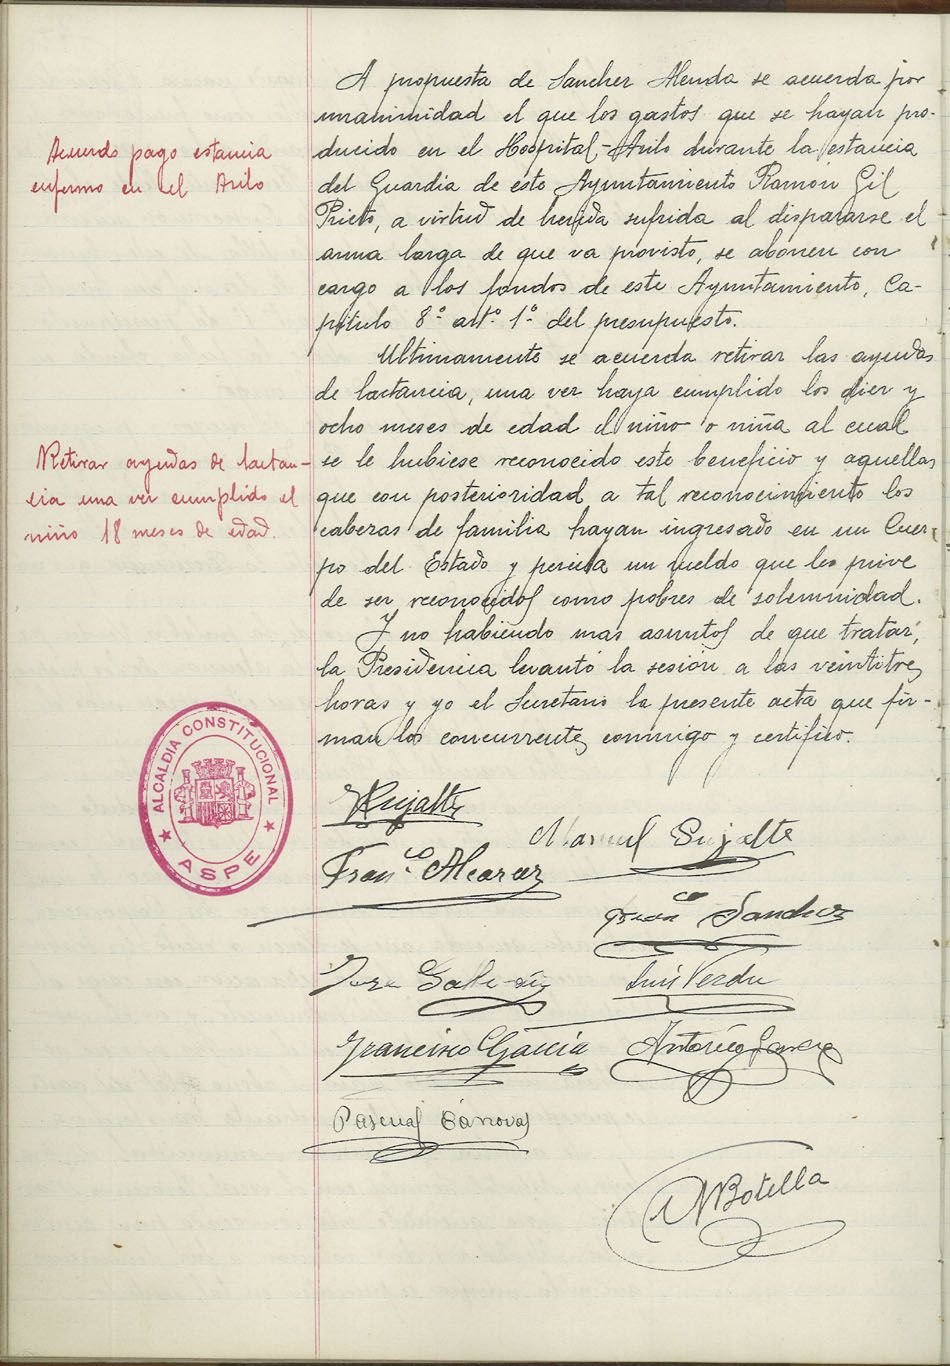 A propuesta de Sanchez Alenda se acuerda por
unanimidad el que los gastos que se hayan pro-
ducido en el Hospital-Asilo durante la estancia
del Guardia de este Ayuntamiento Ramón Gil
Prieto, a virtud de herida sufrida al dispararse el
arma larga de que va provisto, se abonen con
cargo a los fondos de este Ayuntamiento, Ca-
pítulo 8º artº 1º del presupuesto.
Acuerdo pago estancia
enfermo en el Asilo
Ultimamente se acuerda retirar las ayudas
de lactancia, una vez haya cumplido los diez y
ocho meses de edad el niño o niña al cual
se le hubiese reconocido este beneficio y aquellas
que con posterioridad a tal reconocimiento los
cabezas de familia hayan ingresado en un Cuer-
po del Estado y perciba un sueldo que les prive
de ser reconocidos como pobres de solemnidad.
Retirar ayudas de lactan-
cia una vez cumplido el
niño 18 meses de edad.
Y no habiendo mas asuntos de que tratar,
la Presidencia levantó la sesión a las veintitres
horas y yo el Secretario la presente acta que fir-
man los concurrentes conmigo y certifico.
ALCALDIA CONSTITUCIONAL
ASPE
Manuel Pujalte
Franco Alcaraz
Franco Sanchez
Luis Verdu
Francisco García
Antonio
Pascual Cánovas
Botella